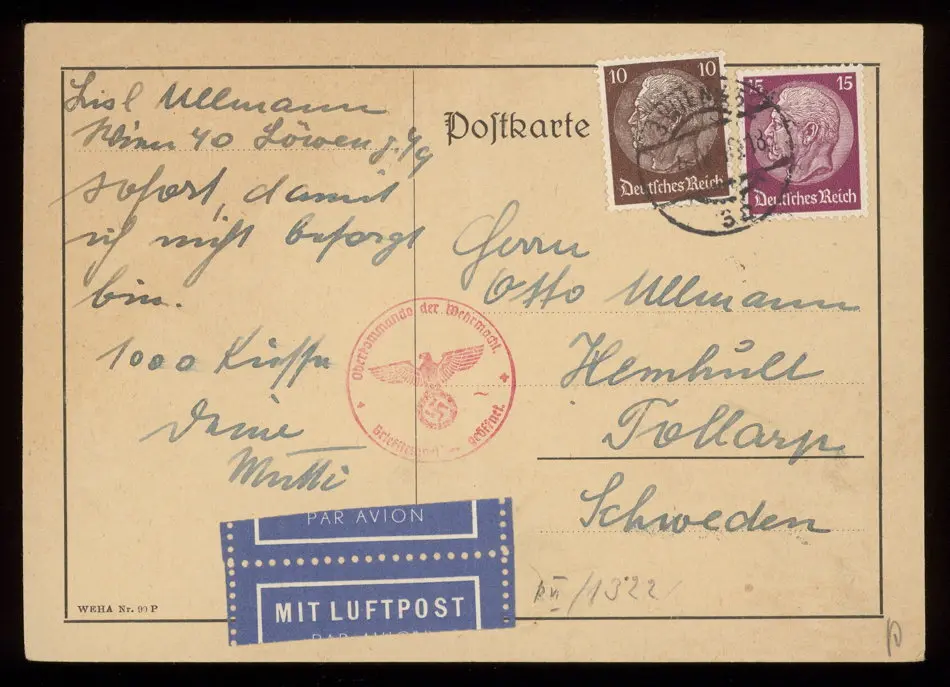 Lisl Ullmann
Wien 40 Löweng.
sofort, damit
ich nicht besorgt
bin.
1000 Küsse
Deine
Mutti
Postkarte
10 10
Deutsches Reich
15 15
Deutsches Reich
Herrn
Otto Ullmann
Hemhult
Tollarp
Schweden
Oberkommando der Wehrmacht.
geöffnet.
PAR AVION
MIT LUFTPOST
PAR AVION
WEHA Nr. 99 P
/1322